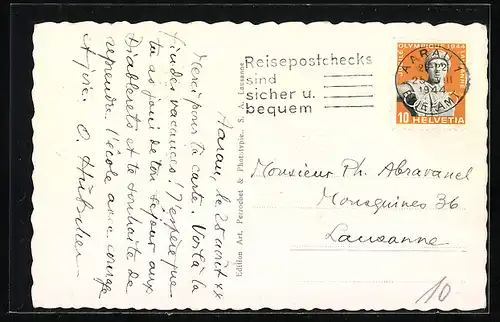 Aarau, le 25 août 44
Merci pour ta carte. Voilà la
fin des vacances! J'espère que
tu as joui de ton séjour aux
Diablerets et te souhaite de
reprendre l'école avec courage
O. Hübscher
Edition Art. Perrochet & Phototypie. S. A. Lausanne
Reisepostchecks
sind
sicher u.
bequem
AARAU 1
1944
OLYMPIQUE 1944
10 HELVETIA
Monsieur Ph. Abravanel
Mousquines 36
Lausanne
10